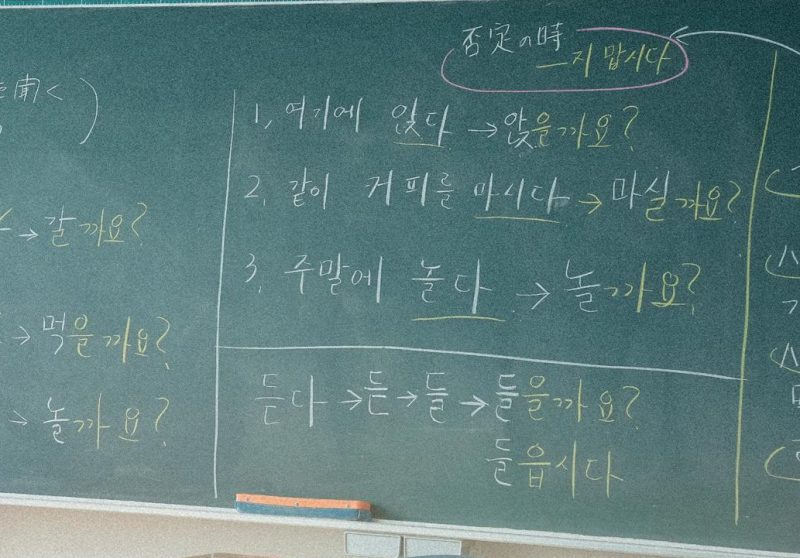 を聞く)
→갈까요?
→먹을까요?
→놀까요?
否定の時
―지 맙시다
1, 여기에 앉다 →앉을까요?
2, 같이 커피를 마시다 → 마실까요?
3, 주말에 놀다 → 놀까요?
듣다 →듣→들→들을까요?
들읍시다